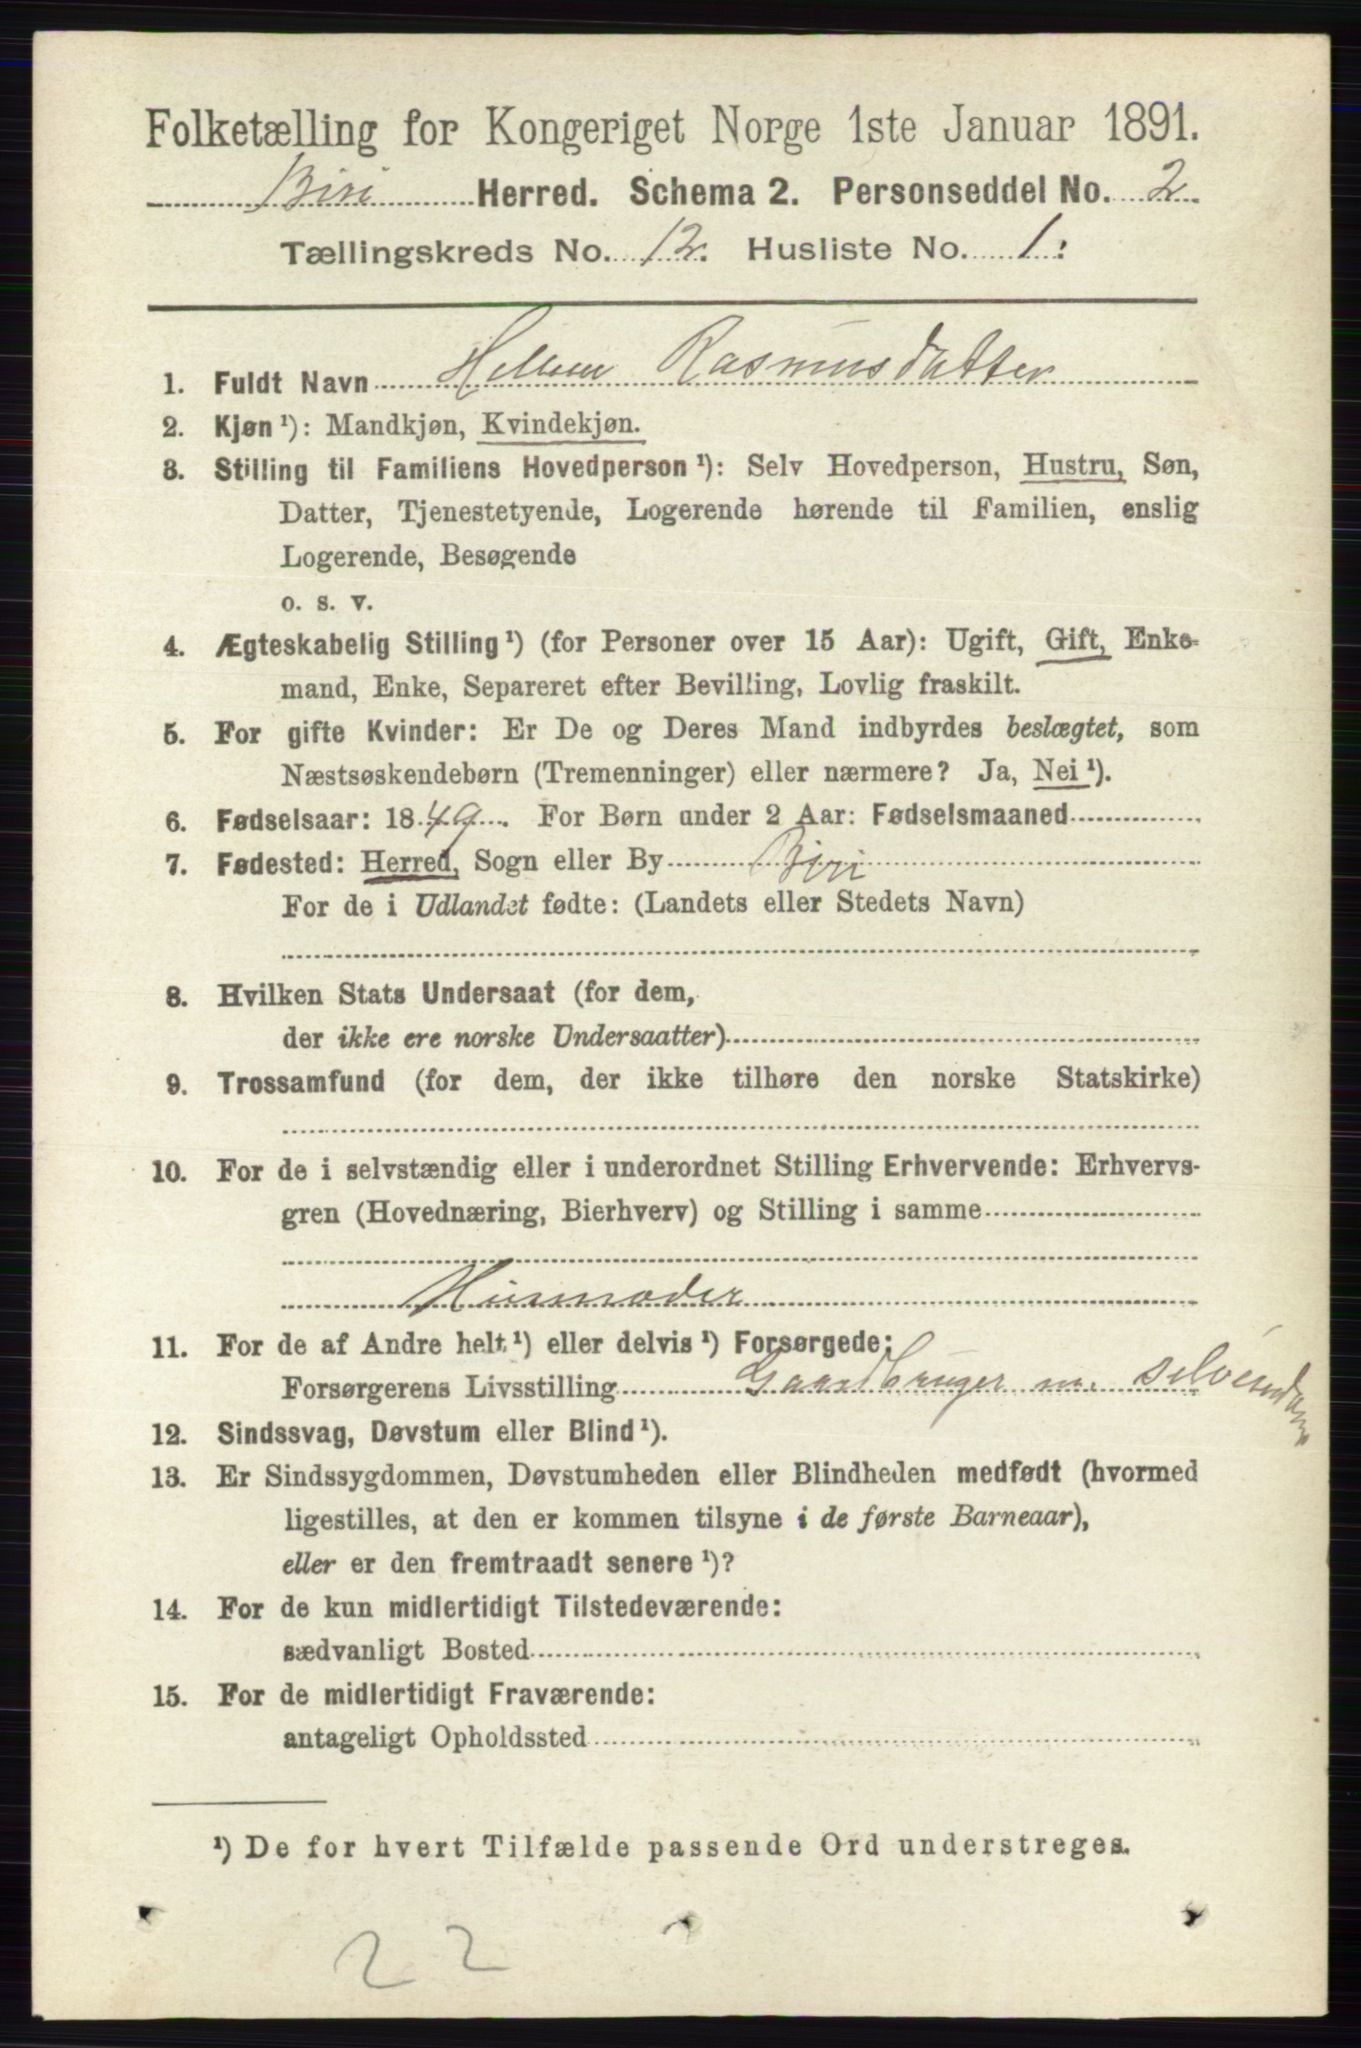 Folketælling for Kongeriget Norge 1ste Januar 1891.
Biri Herred. Schema 2. Personseddel No. 2
Tællingskreds No. 12. Husliste No. 1.
1. Fuldt Navn Rasmusdatter
2. Kjøn¹): Mandkjøn, Kvindekjøn.
3. Stilling til Familiens Hovedperson¹): Selv Hovedperson, Hustru, Søn,
Datter, Tjenestetyende, Logerende hørende til Familien, enslig
Logerende, Besøgende
o. s. v.
4. Ægteskabelig Stilling¹) (for Personer over 15 Aar): Ugift, Gift, Enke-
mand, Enke, Separeret efter Bevilling, Lovlig fraskilt.
5. For gifte Kvinder: Er De og Deres Mand indbyrdes beslægtet, som
Næstsøskendebørn (Tremenninger) eller nærmere? Ja, Nei¹).
6. Fødselsaar: 1849. For Børn under 2 Aar: Fødselsmaaned
7. Fødested: Herred, Sogn eller By Biri
For de i Udlandet fødte: (Landets eller Stedets Navn)
8. Hvilken Stats Undersaat (for dem,
der ikke ere norske Undersaatter)
9. Trossamfund (for dem, der ikke tilhøre den norske Statskirke)
10. For de i selvstændig eller i underordnet Stilling Erhvervende: Erhvervs-
gren (Hovednæring, Bierhverv) og Stilling i samme
Husmoder
11. For de af Andre helt¹) eller delvis¹) Forsørgede:
Forsørgerens Livsstilling Gaardbruger
12. Sindssvag, Døvstum eller Blind¹).
13. Er Sindssygdommen, Døvstumheden eller Blindheden medfødt (hvormed
ligestilles, at den er kommen tilsyne i de første Barneaar),
eller er den fremtraadt senere¹)?
14. For de kun midlertidigt Tilstedeværende:
sædvanligt Bosted
15. For de midlertidigt Fraværende:
antageligt Opholdssted
¹) De for hvert Tilfælde passende Ord understreges.
22